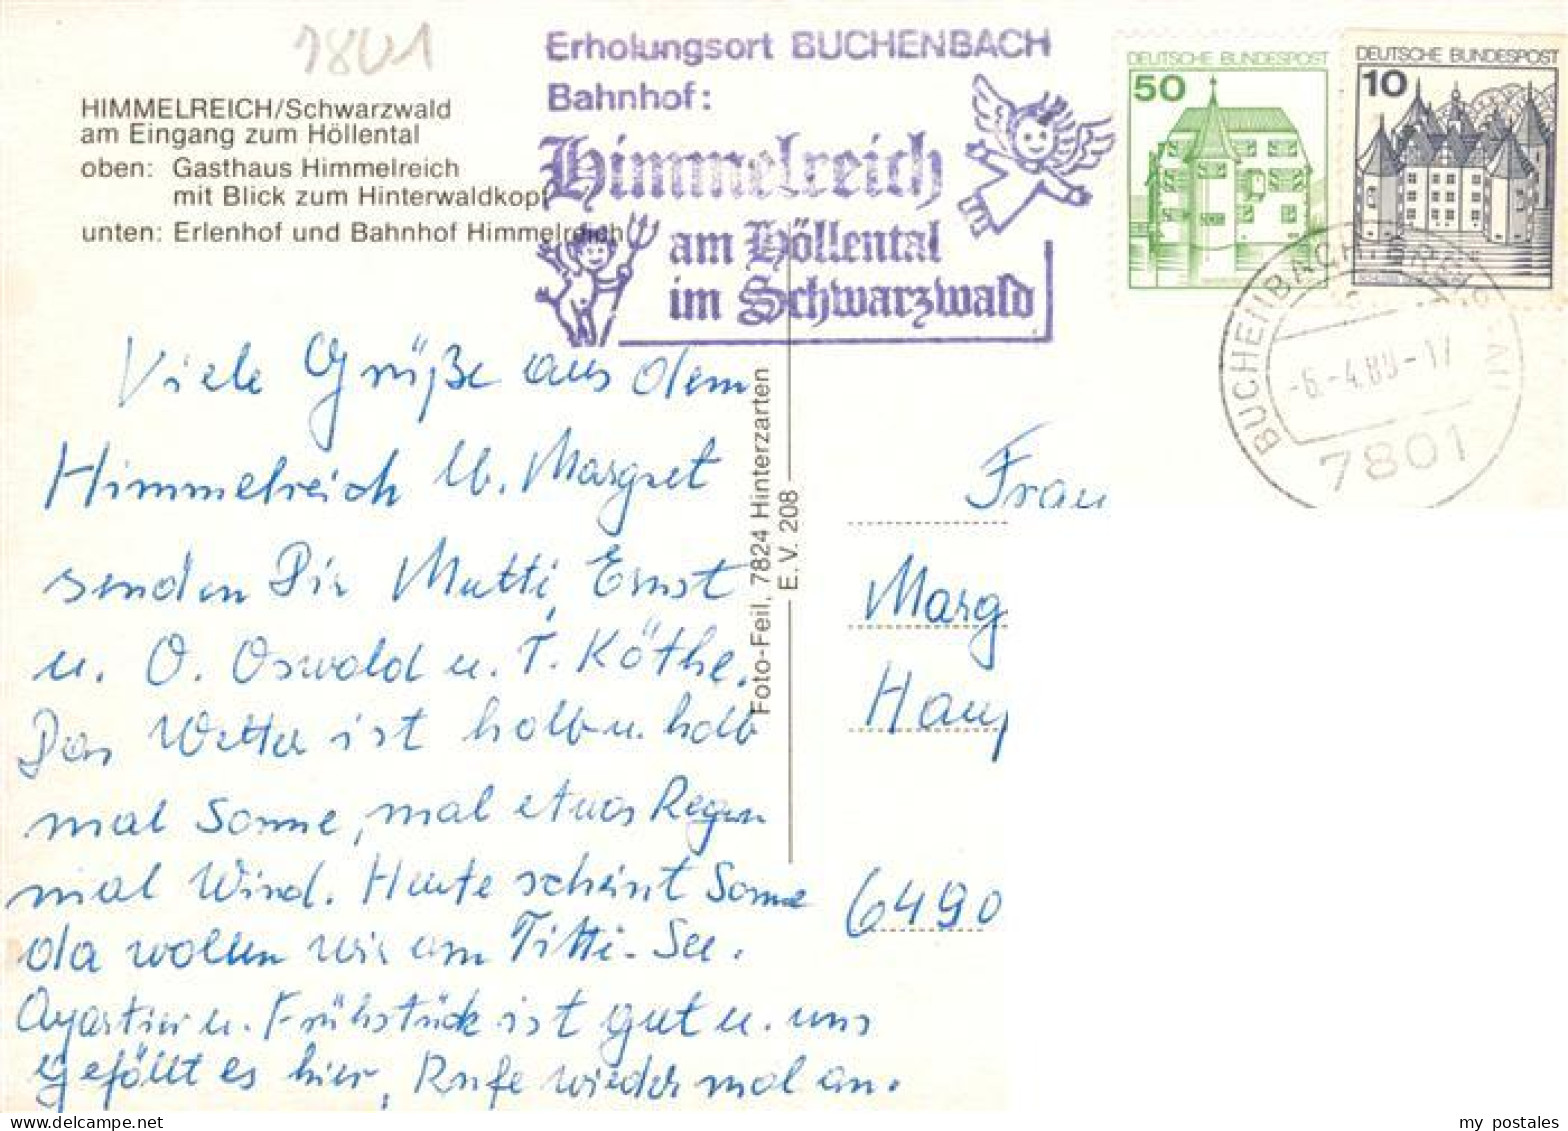 7801
HIMMELREICH/Schwarzwald
am Eingang zum Höllental
oben: Gasthaus Himmelreich
mit Blick zum Hinterwaldkopf
unten: Erlenhof und Bahnhof Himmelreich
Erholungsort BUCHENBACH
Bahnhof:
Himmelreich
am Höllental
im Schwarzwald
DEUTSCHE BUNDESPOST
50
DEUTSCHE BUNDESPOST
10
BUCHENBACH
-6.-4.80-17
7801
Viele Grüße aus dem
Himmelreich lb. Margret
senden Dir Mutti, Ernst
u. O. Oswald u. T. Käthe.
Das Wetter ist halb u. halb
mal Sonne, mal etwas Regen
mal Wind. Heute scheint Sonne
da wollen wir am Titti-See.
u. Frühstück ist gut u. uns
gefällt es hier, Rufe wieder mal an.
Foto-Feil, 7824 Hinterzarten
E. V. 208
Frau
Marg
Haup
6490
my postales